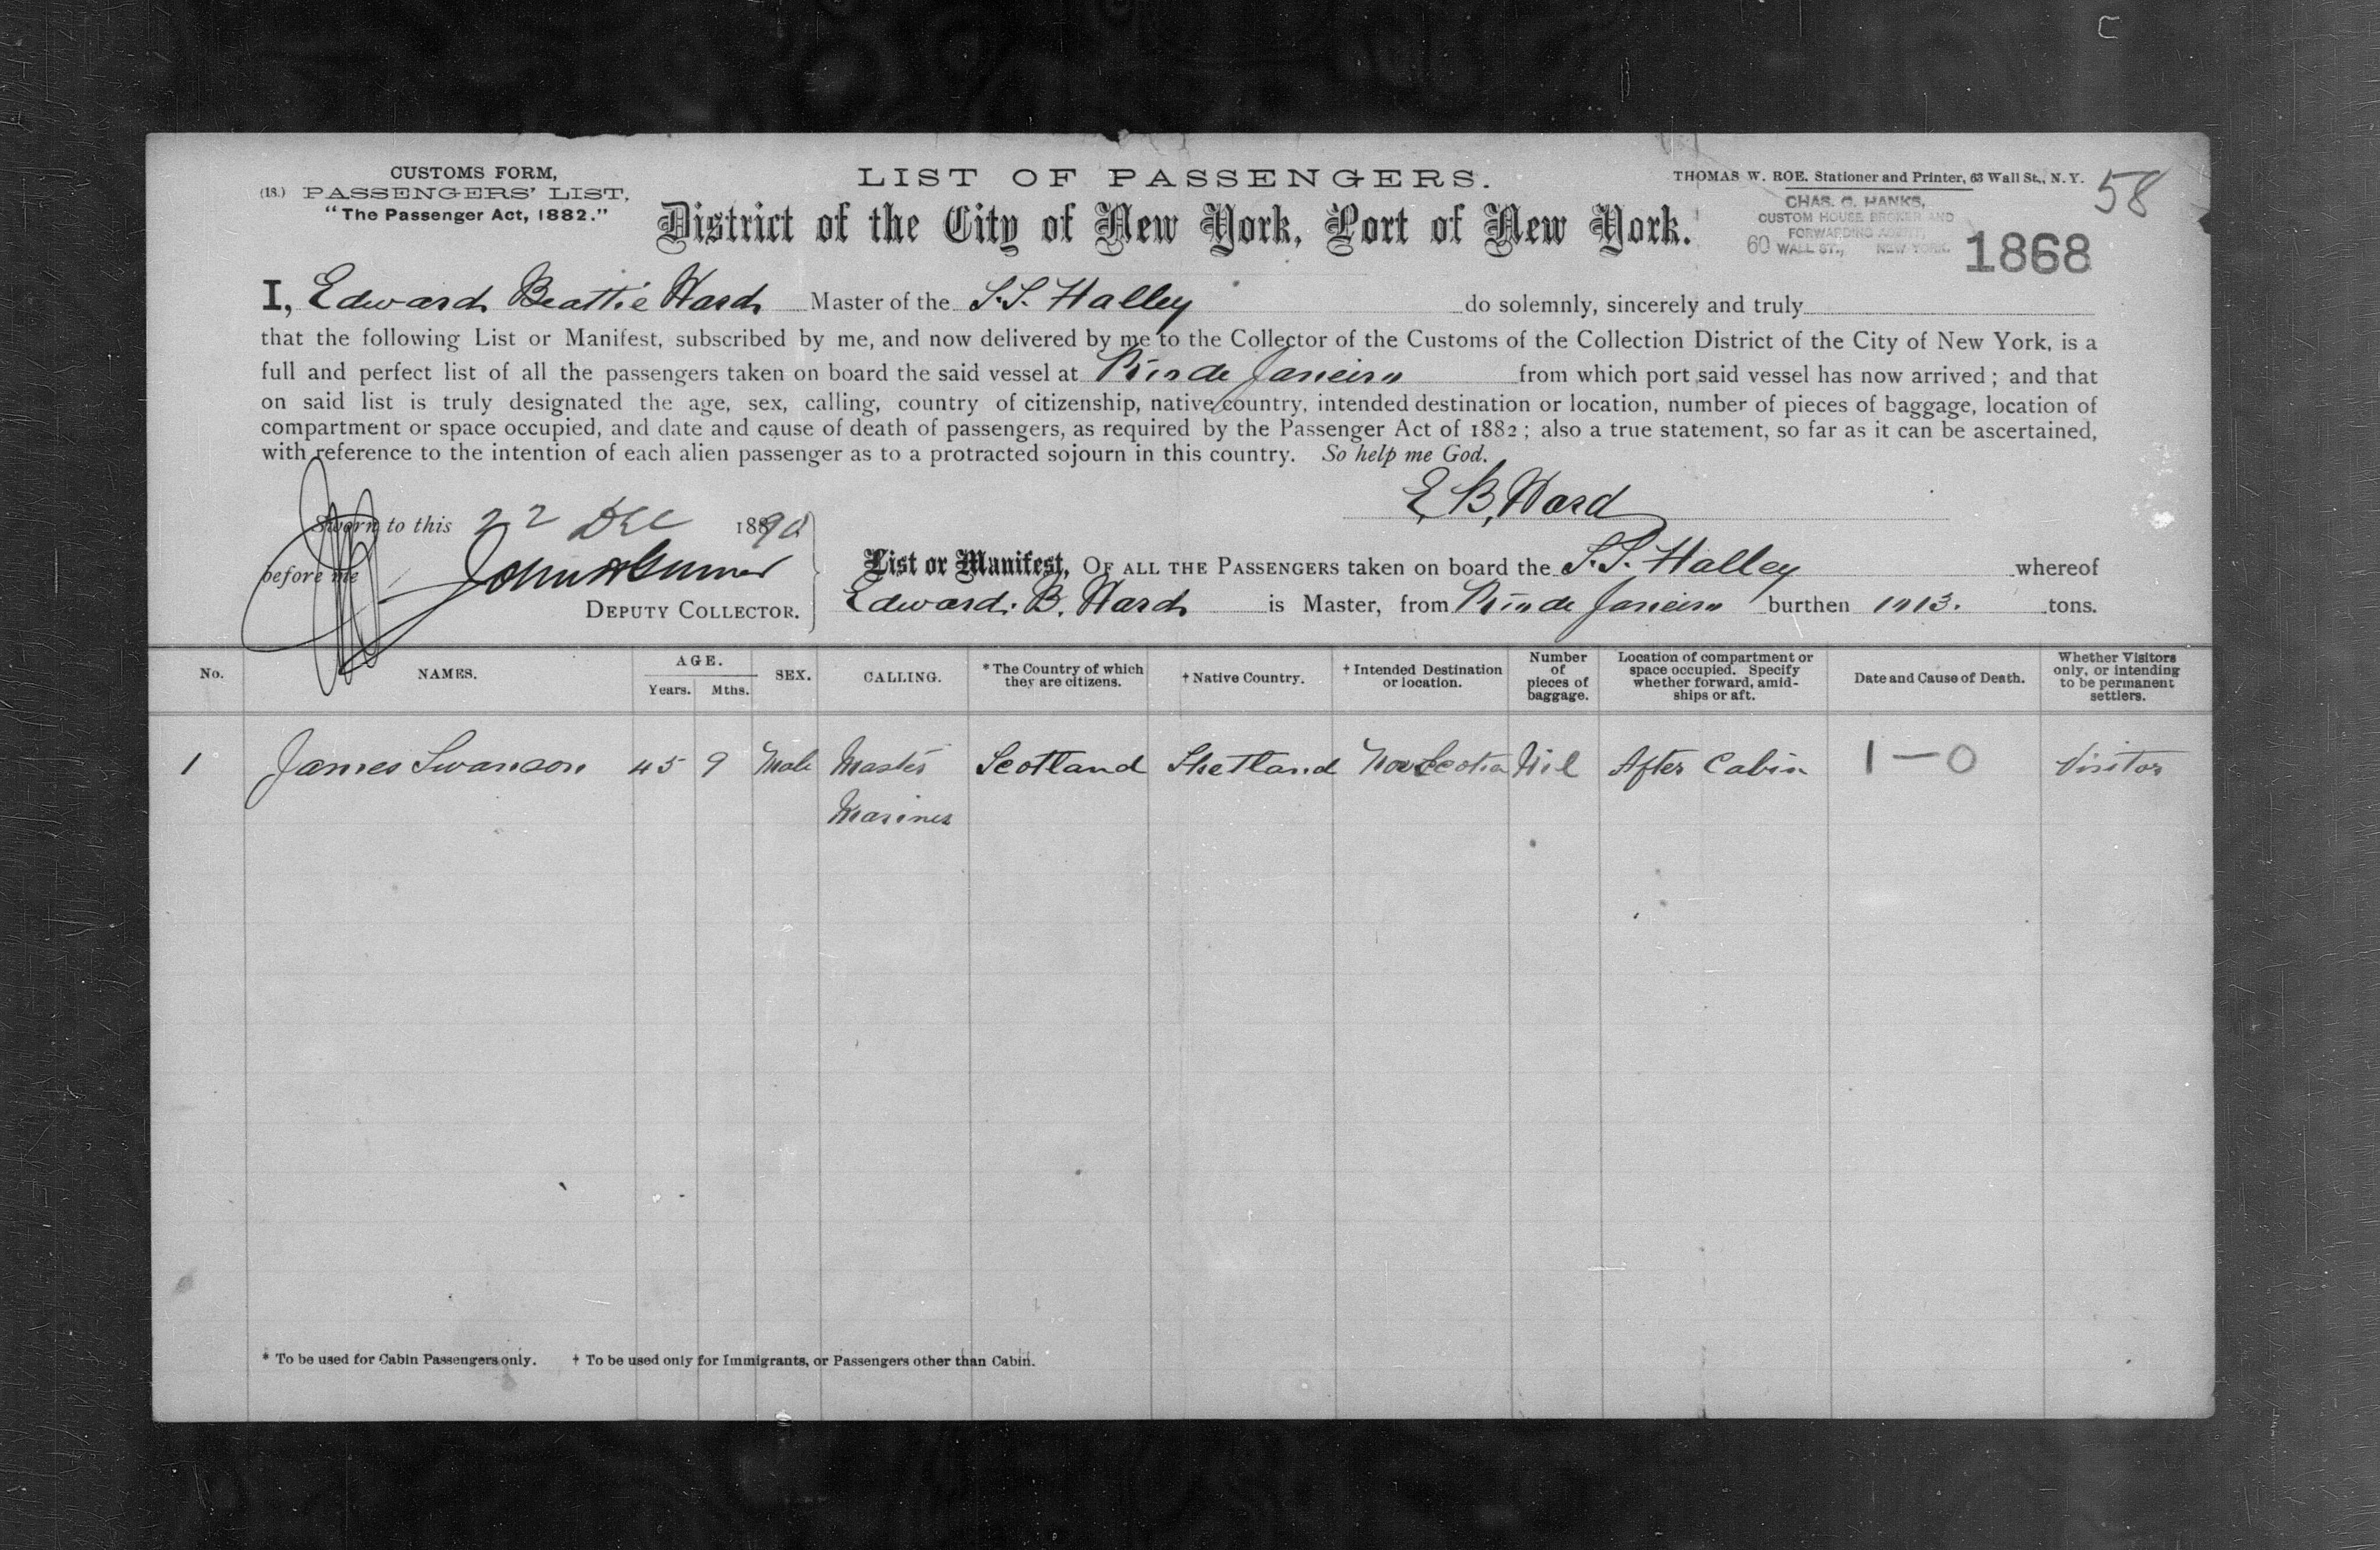 C
CUSTOMS FORM,
(18.) PASSENGERS' LIST,
"The Passenger Act, 1882."
LIST OF PASSENGERS.
District of the City of New York, Port of New York.
THOMAS W. ROE, Stationer and Printer, 63 Wall St., N.Y.
58
CHAS. G. HANKS,
CUSTOM HOUSE BROKER AND
FORWARDING AGENT,
60 WALL ST., NEW YORK.
1868
I, Edward Beattie Ward Master of the S.S. Halley do solemnly, sincerely and truly
that the following List or Manifest, subscribed by me, and now delivered by me to the Collector of the Customs of the Collection District of the City of New York, is a
full and perfect list of all the passengers taken on board the said vessel at Rio de Janeiro from which port said vessel has now arrived; and that
on said list is truly designated the age, sex, calling, country of citizenship, native country, intended destination or location, number of pieces of baggage, location of
compartment or space occupied, and date and cause of death of passengers, as required by the Passenger Act of 1882; also a true statement, so far as it can be ascertained,
with reference to the intention of each alien passenger as to a protracted sojourn in this country. So help me God.
E. B. Ward
Sworn to this 22 Dec 1890
before me John
DEPUTY COLLECTOR.
List or Manifest, OF ALL THE PASSENGERS taken on board the S.S. Halley whereof
Edward. B. Ward is Master, from Rio de Janeiro burthen tons.
No. NAMES. AGE. Years. Mths. SEX. CALLING. *The Country of which they are citizens. †Native Country. †Intended Destination or location. Number of pieces of baggage. Location of compartment or space occupied. Specify whether forward, amidships or aft. Date and Cause of Death. Whether Visitors only, or intending to be permanent settlers.
1 James Swanson 45 9 Male Master Scotland Shetland Nova Scotia Nil After Cabin 1 — 0 Visitor
Mariner
* To be used for Cabin Passengers only. † To be used only for Immigrants, or Passengers other than Cabin.